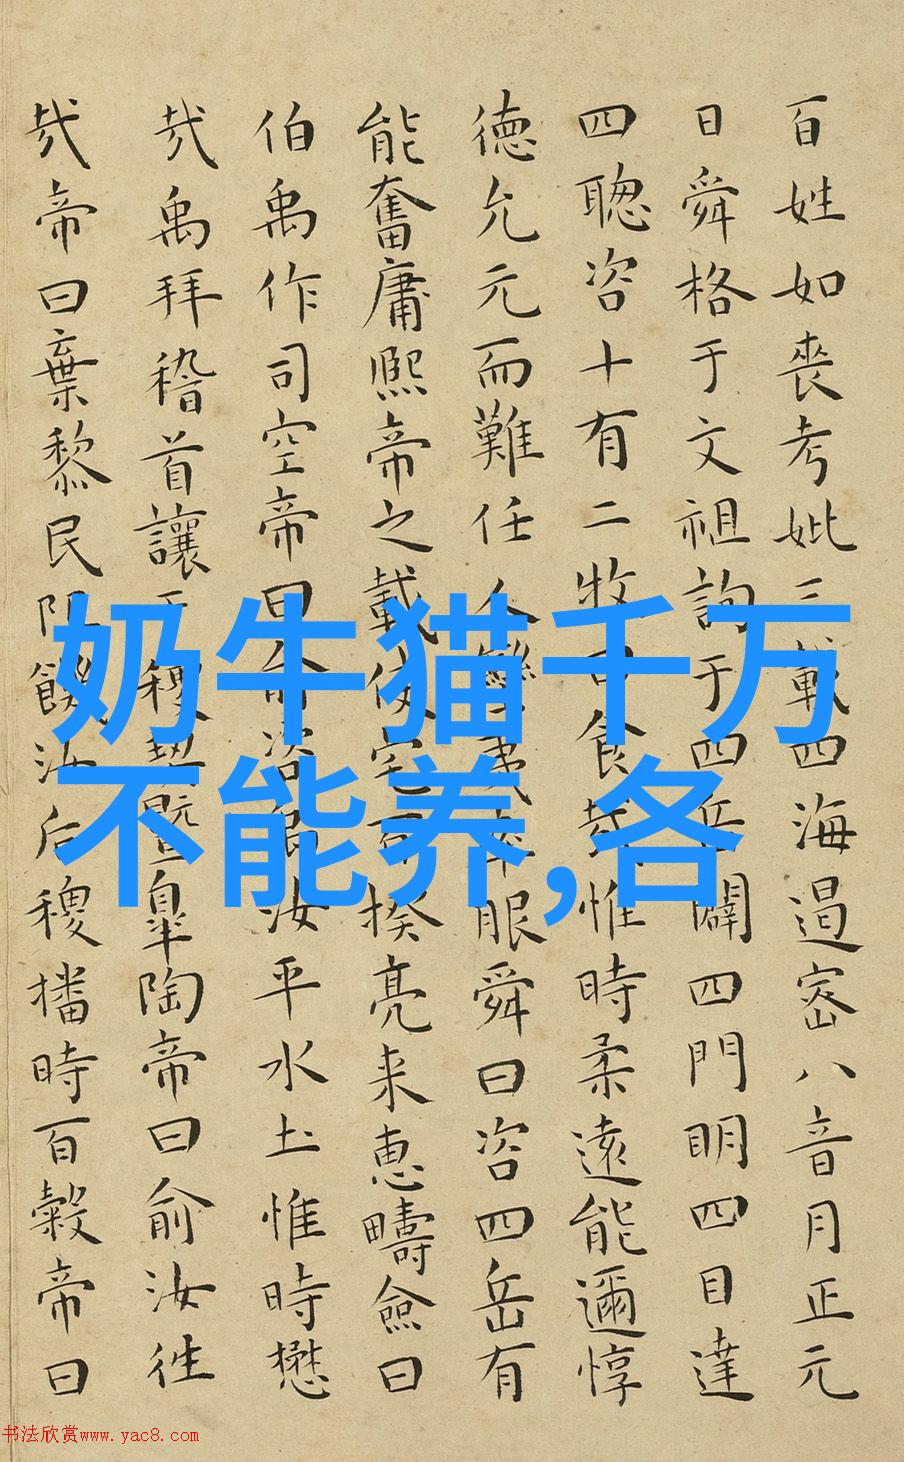 百姓如喪考妣三載四海遏密八音月正元
日舜格于文祖詢于四岳闢四門明四目達
四聰咨十有二牧曰食哉惟時柔遠能邇惇
德允元而難任人蠻夷率服舜曰咨四岳有
能奮庸熙帝之載使宅百揆亮来惠疇僉曰
伯禹作司空帝曰俞咨禹汝平水土惟時懋
哉禹拜稽首讓于稷契暨皐陶帝曰俞汝往
哉帝曰棄黎民阻飢汝后稷播時百穀帝曰
奶牛猫千万
不能养,各
书法欣赏www.yac8.com